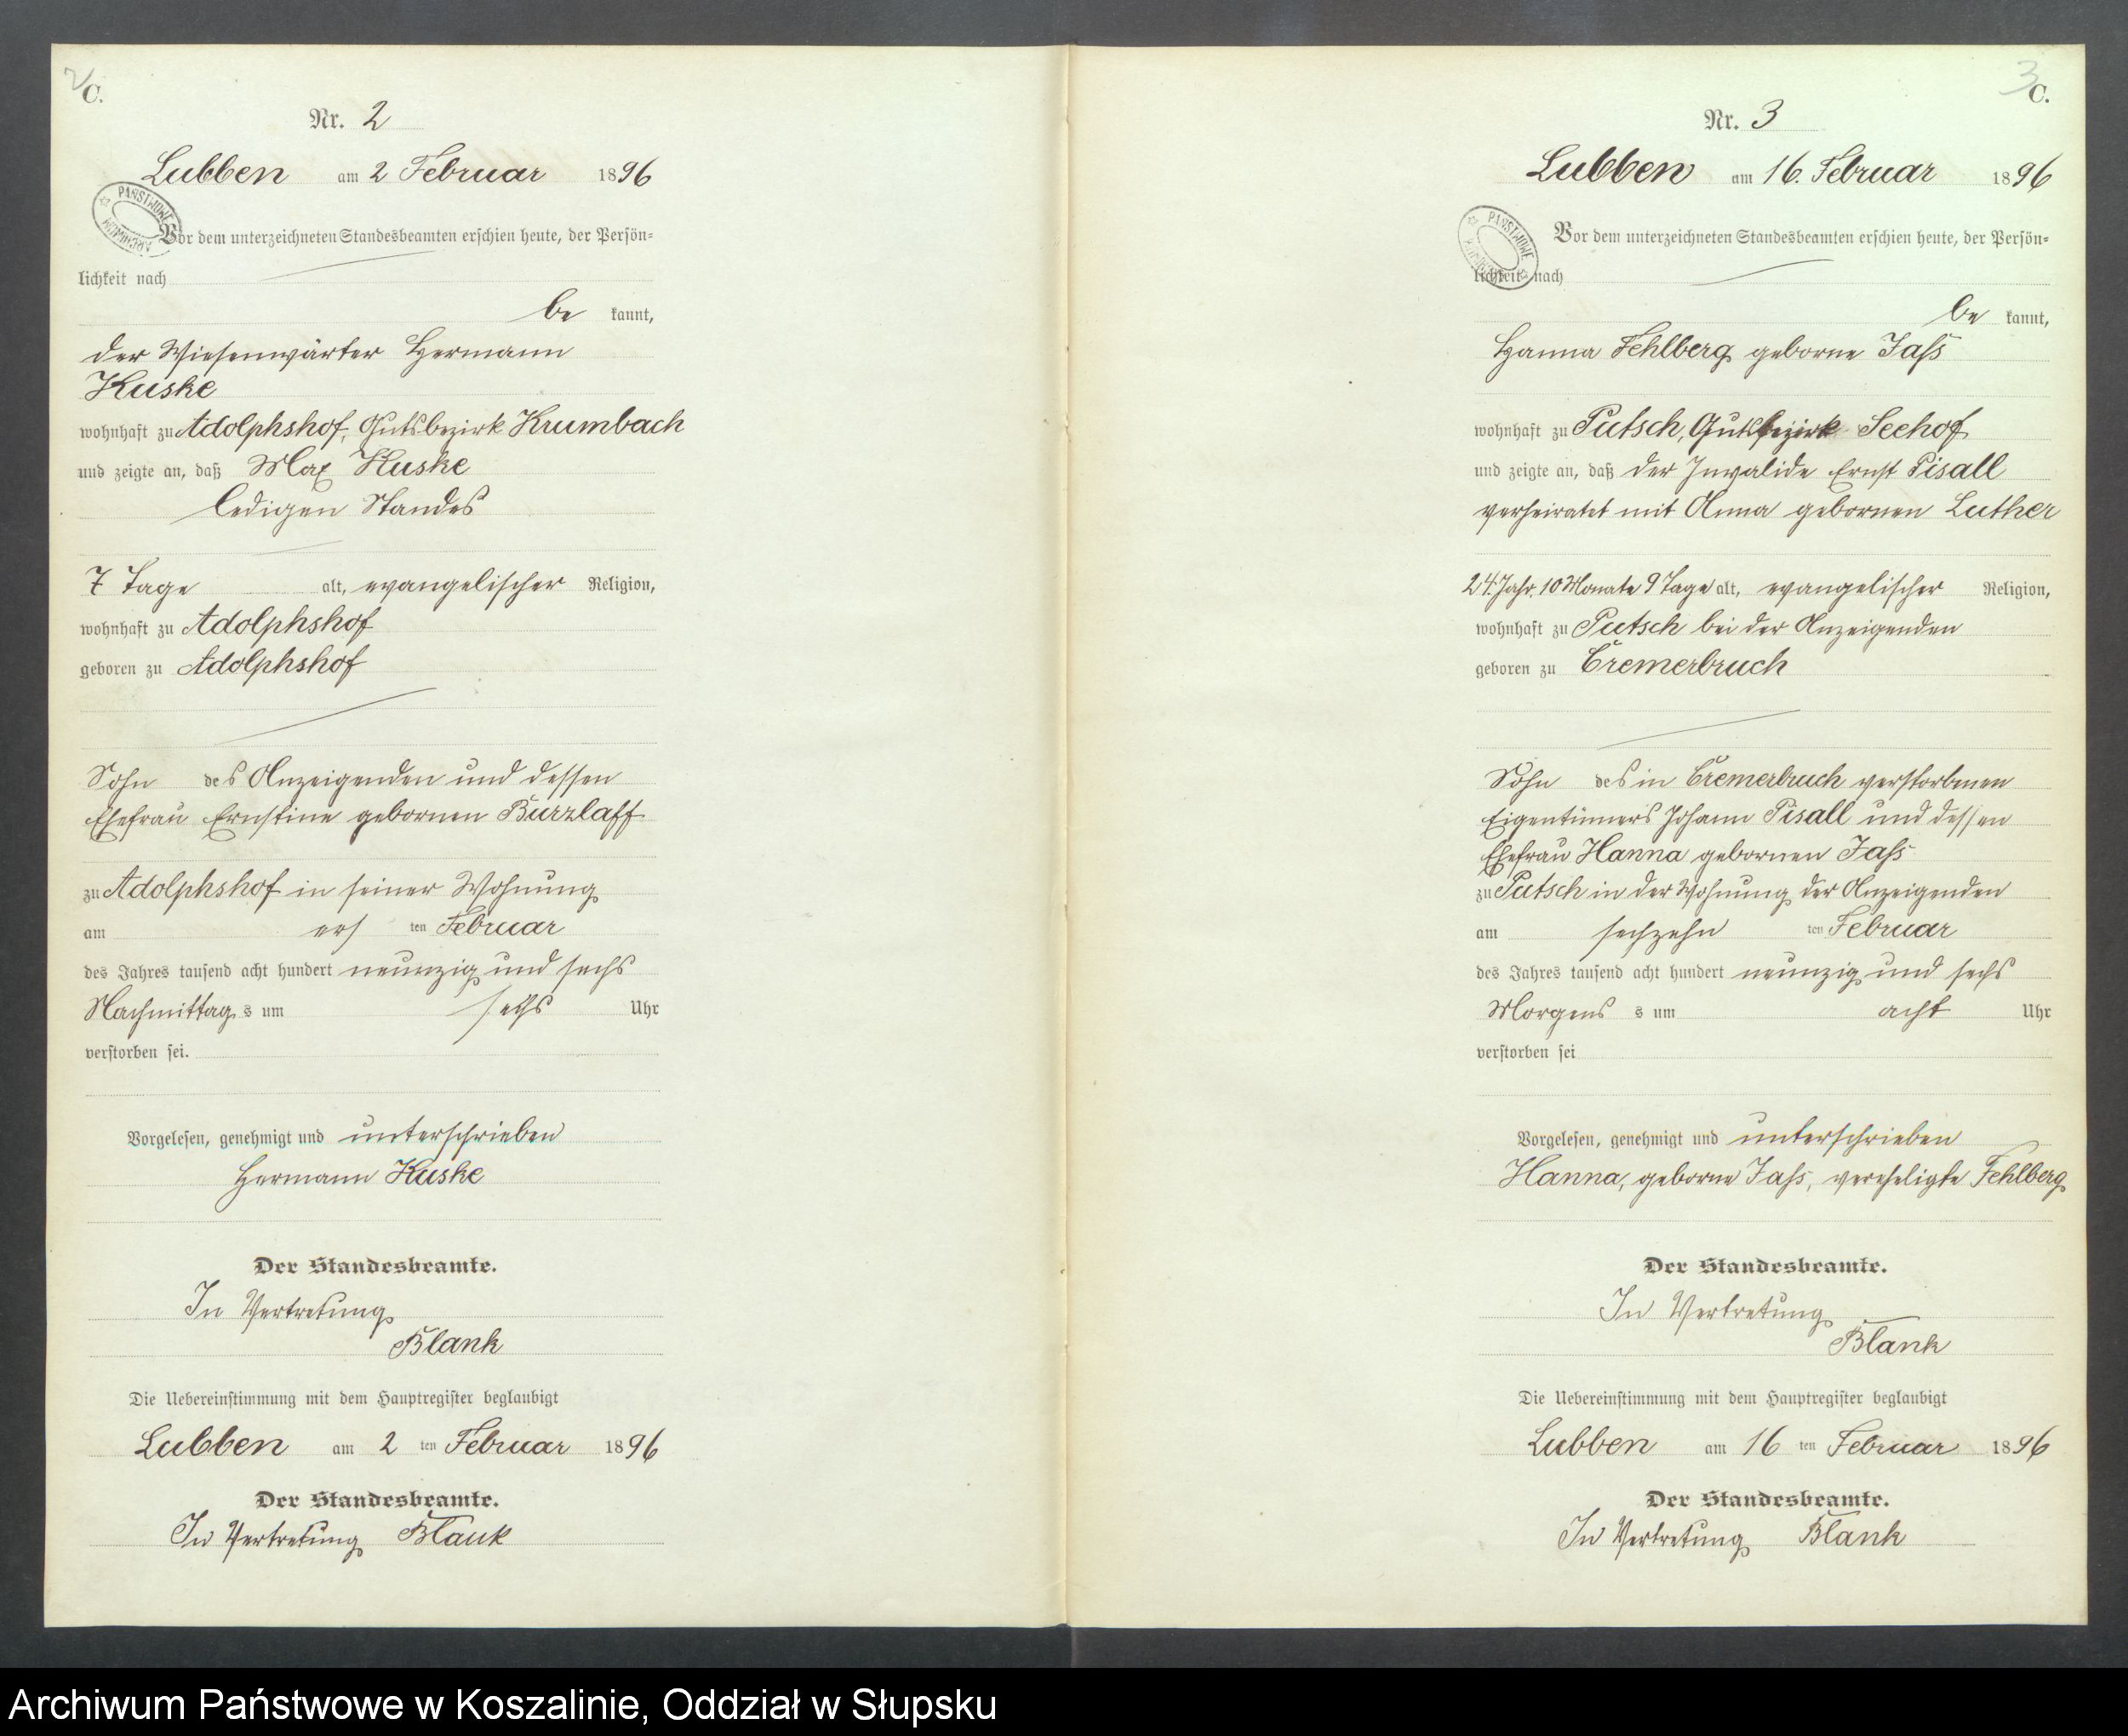 2
C.
Nr. 2
Lubben am 2 Februar 1896
PAŃSTWOWE ARCHIWUM
Vor dem unterzeichneten Standesbeamten erschien heute, der Persön=
lichkeit nach
be kannt,
der Wiesenwärter Hermann
Kuske
wohnhaft zu Adolphshof, Gutsbezirk Krumbach
und zeigte an, daß Max Kuske
ledigen Standes
7 Tage alt, evangelischer Religion,
wohnhaft zu Adolphshof
geboren zu Adolphshof
Sohn des Anzeigenden und dessen
Ehefrau Ernstine gebornen Burzlaff
zu Adolphshof in seiner Wohnung
am ers ten Februar
des Jahres tausend acht hundert neunzig und sechs
Nachmittag s um sechs Uhr
verstorben sei.
Vorgelesen, genehmigt und unterschrieben
Hermann Kuske
Der Standesbeamte.
In Vertretung
Blank
Die Uebereinstimmung mit dem Hauptregister beglaubigt
Lubben am 2 ten Februar 1896
Der Standesbeamte.
In Vertretung Blank
3
C.
Nr. 3
Lubben am 16. Februar 1896
PAŃSTWOWE ARCHIWUM
Vor dem unterzeichneten Standesbeamten erschien heute, der Persön=
lichkeit nach
be kannt,
Hanna Fehlberg geborne Jaß
wohnhaft zu Putsch, Gutsbezirk Seehof
und zeigte an, daß der Invalide Ernst Pisall
verheiratet mit Anna gebornen Luther
24 Jahr, 10 Monate 9 Tage alt, evangelischer Religion,
wohnhaft zu Putsch bei der Anzeigenden
geboren zu Cremerbruch
Sohn des in Cremerbruch verstorbenen
Eigentümers Johann Pisall und dessen
Ehefrau Hanna gebornen Jaß
zu Putsch in der Wohnung der Anzeigenden
am sechzehn ten Februar
des Jahres tausend acht hundert neunzig und sechs
Morgens s um acht Uhr
verstorben sei
Vorgelesen, genehmigt und unterschrieben
Hanna, geborne Jaß, vereheligte Fehlberg
Der Standesbeamte.
In Vertretung
Blank
Die Uebereinstimmung mit dem Hauptregister beglaubigt
Lubben am 16 ten Februar 1896
Der Standesbeamte.
In Vertretung Blank
Archiwum Państwowe w Koszalinie, Oddział w Słupsku